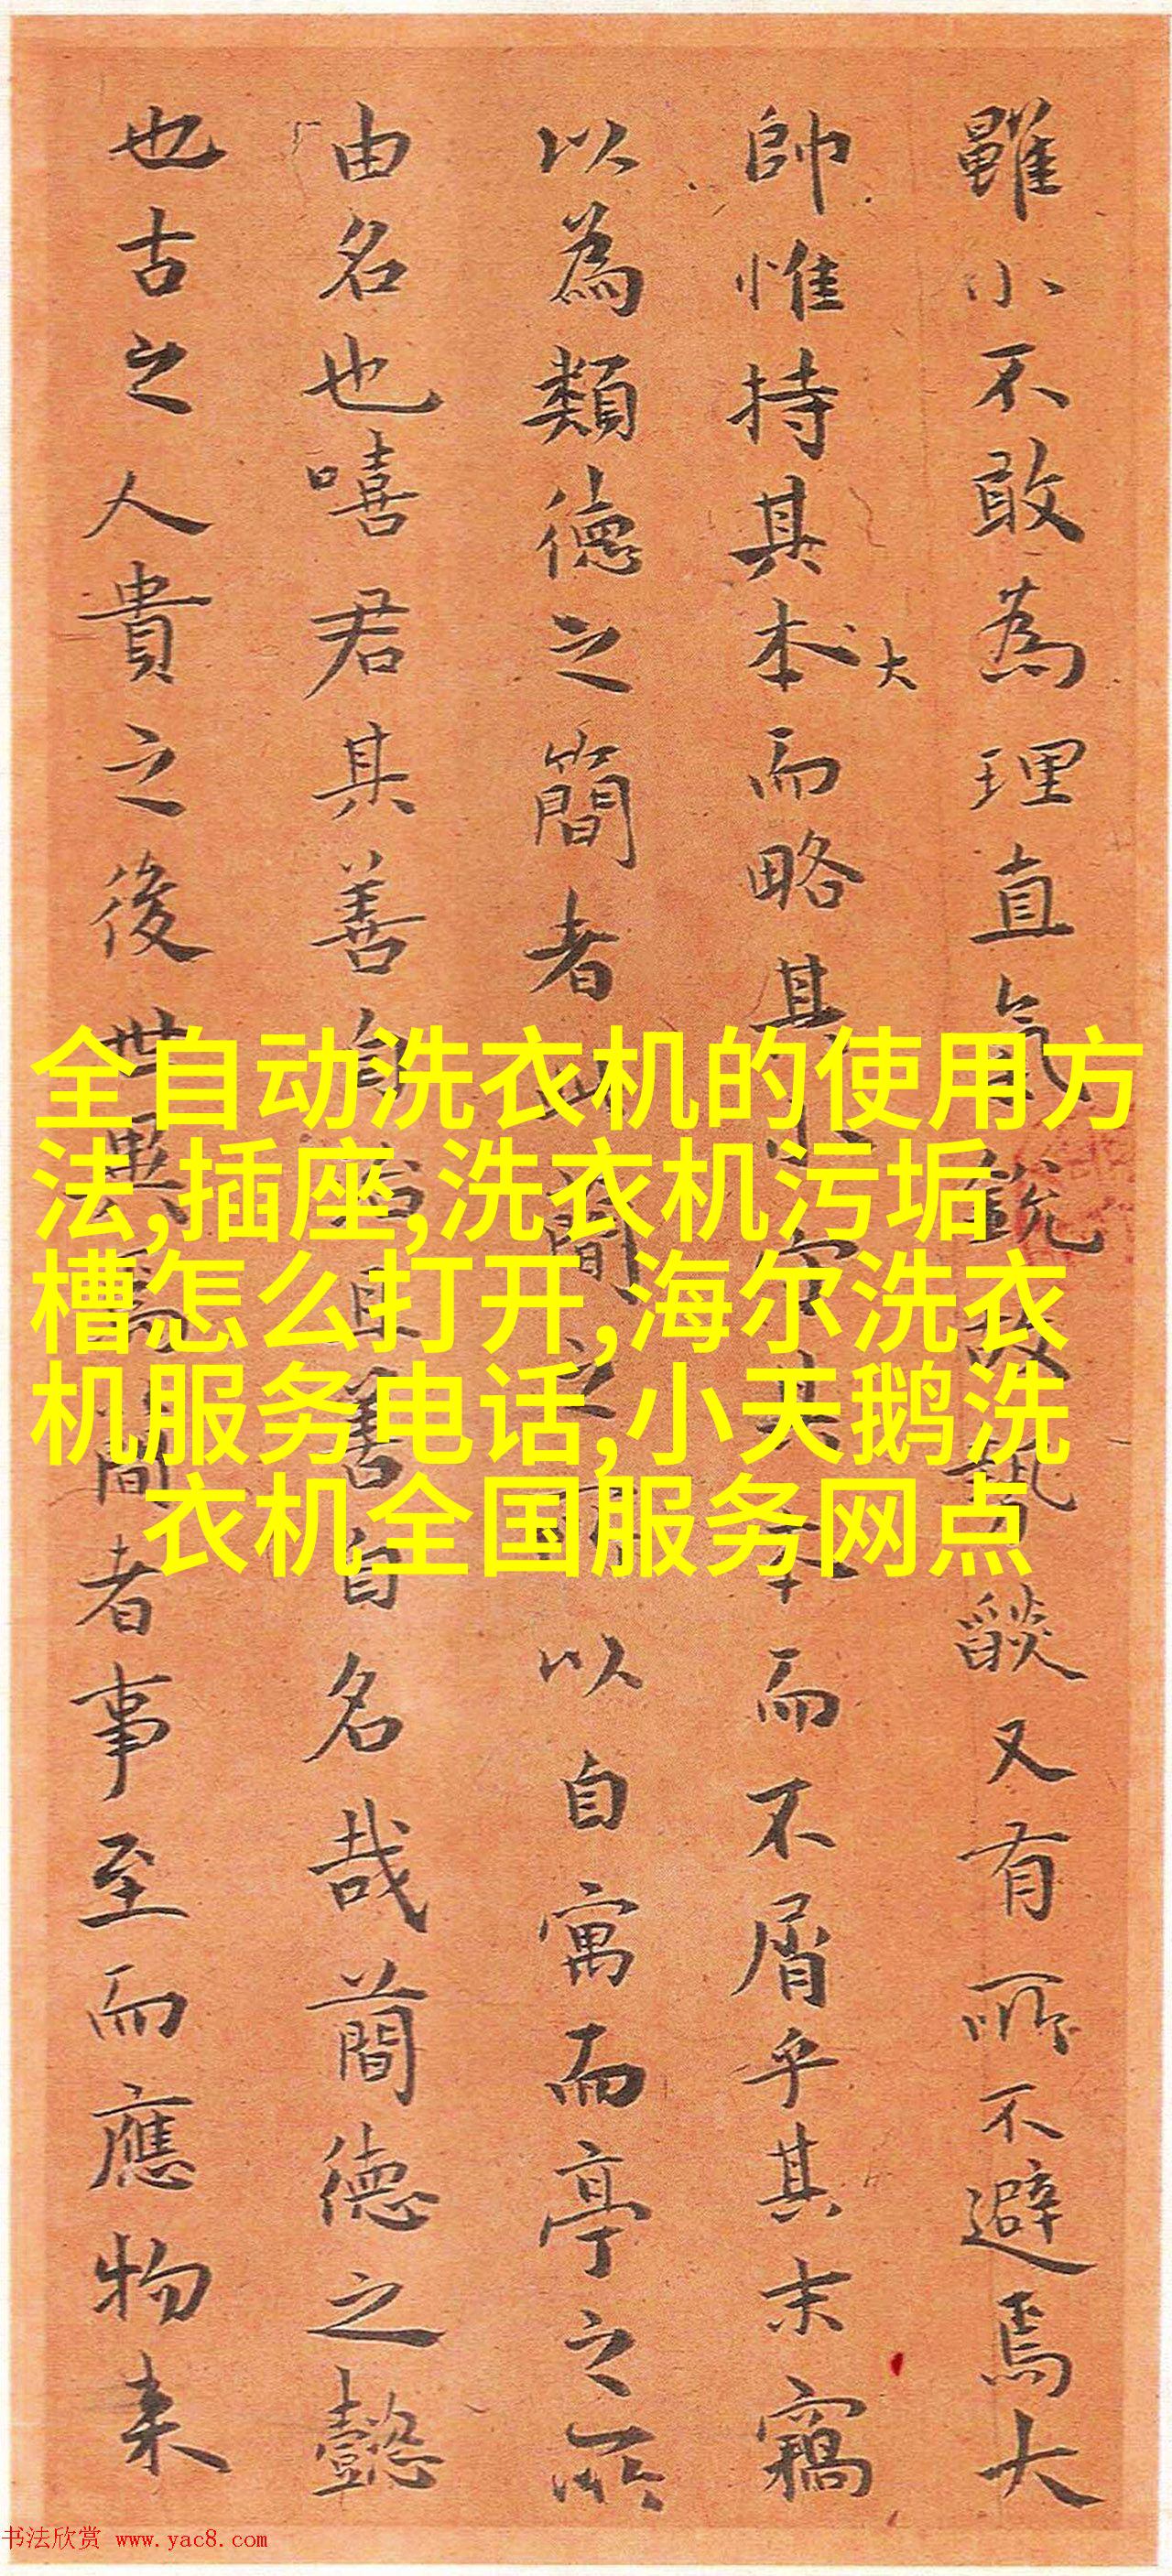 雖小不敢為理直氣銳故勢燄又有所不避焉大
帥惟持其本大而略其小守其本而不屑乎其末竊
以為類德之簡者此簡之所以自寓而亭之所
由名也嘻君其善自治且善自名哉簡德之懿
也古之人貴之後世異焉簡者事至而應物来
全自动洗衣机的使用方
法,插座,洗衣机污垢
槽怎么打开,海尔洗衣
机服务电话,小天鹅洗
衣机全国服务网点
书法欣赏 www.yac8.com